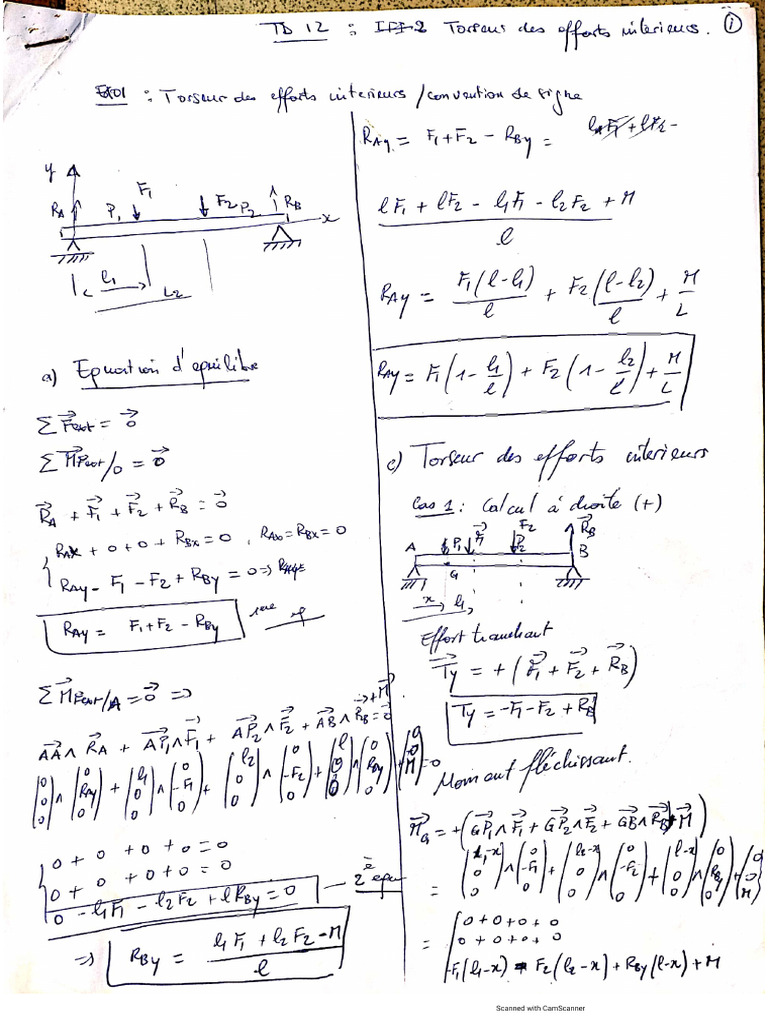 TD 12 : Torseur des efforts interieurs. 1
Exo1 : Torseur des efforts interieurs / convention de signe
y
RA P1 F1 F2 P2 RB x
l1
L2
a) Equation d'equilibre
Σ F⃗ext = 0⃗
Σ M⃗Fext/O = 0⃗
R⃗A + F⃗1 + F⃗2 + R⃗B = 0⃗
RAx + 0 + 0 + RBx = 0 , RAx = RBx = 0
RAy - F1 - F2 + RBy = 0 =>
RAy = F1 + F2 - RBy
Σ M⃗Fext/A = 0⃗ =>
AA⃗ ∧ R⃗A + AP⃗1 ∧ F⃗1 + AP⃗2 ∧ F⃗2 + AB⃗ ∧ R⃗B + M⃗ = 0⃗
(0 0 0) ∧ (0 RAy 0) + (l1 0 0) ∧ (0 -F1 0) + (l2 0 0) ∧ (0 -F2 0) + (l 0 0) ∧ (0 RBy 0) + (0 0 M) = 0
0 + 0 + 0 + 0 = 0
0 + 0 + 0 + 0 = 0
0 - l1F1 - l2F2 + lRBy = 0
=> RBy = (l1F1 + l2F2 - M) / l
RAy = F1 + F2 - RBy =
(lF1 + lF2 - l1F1 - l2F2 + M) / l
RAy = F1(l-l1)/l + F2(l-l2)/l + M/L
RAy = F1(1 - l1/l) + F2(1 - l2/l) + M/L
c) Torseur des efforts interieurs
Cas 1 : Calcul à droite (+)
A G P1 F⃗1 F2 P2 R⃗B B
x l1
Effort tranchant
T⃗y = + (F⃗1 + F⃗2 + R⃗B)
Ty = -F1 - F2 + RB
Moment fléchissant.
M⃗G = + (GP⃗1 ∧ F⃗1 + GP⃗2 ∧ F⃗2 + GB⃗ ∧ R⃗B + M⃗)
= (l1-x 0 0) ∧ (0 -F1 0) + (l2-x 0 0) ∧ (0 -F2 0) + (l-x 0 0) ∧ (0 RBy 0) + (0 0 M)
= 0 + 0 + 0 + 0
0 + 0 + 0 + 0
-F1(l1-x) - F2(l2-x) + RBy(l-x) + M
Scanned with CamScanner